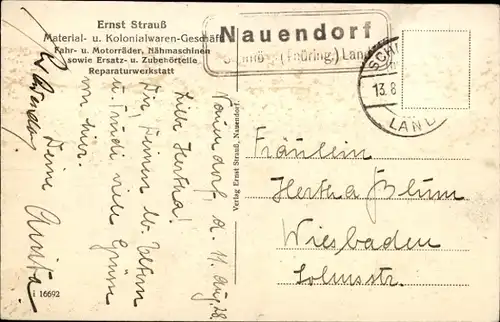 Ernst Strauß
Material- u. Kolonialwaren-Geschäft
Fahr- u. Motorräder, Nähmaschinen
sowie Ersatz- u. Zubehörteile
Reparaturwerkstatt
Nauendorf
(Thüring.) Land
13.8
LAND
Nauendorf, d. 11. Aug. 28.
Liebe Hertha!
Dir, Deinen lb. Eltern
u. Trudi viele Grüsse
von hier.
Deine Anita.
Verlag Ernst Strauß, Nauendorf.
Fräulein
Hertha Blum
Wiesbaden
Solmsstr.
i 16692